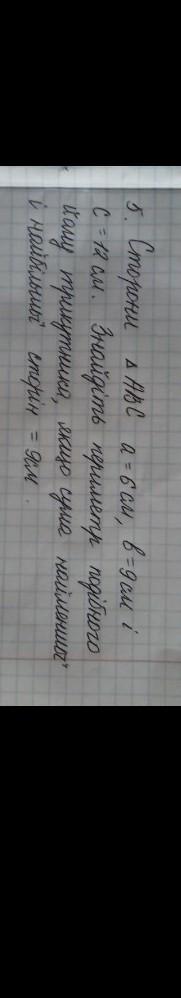 5. Сторони △ ABC a = 6 см, b = 9 см і
c = 12 см. Знайдіть периметр подібного
йому трикутника, якщо сума найменшої
і найбільшої сторін = 9 см.